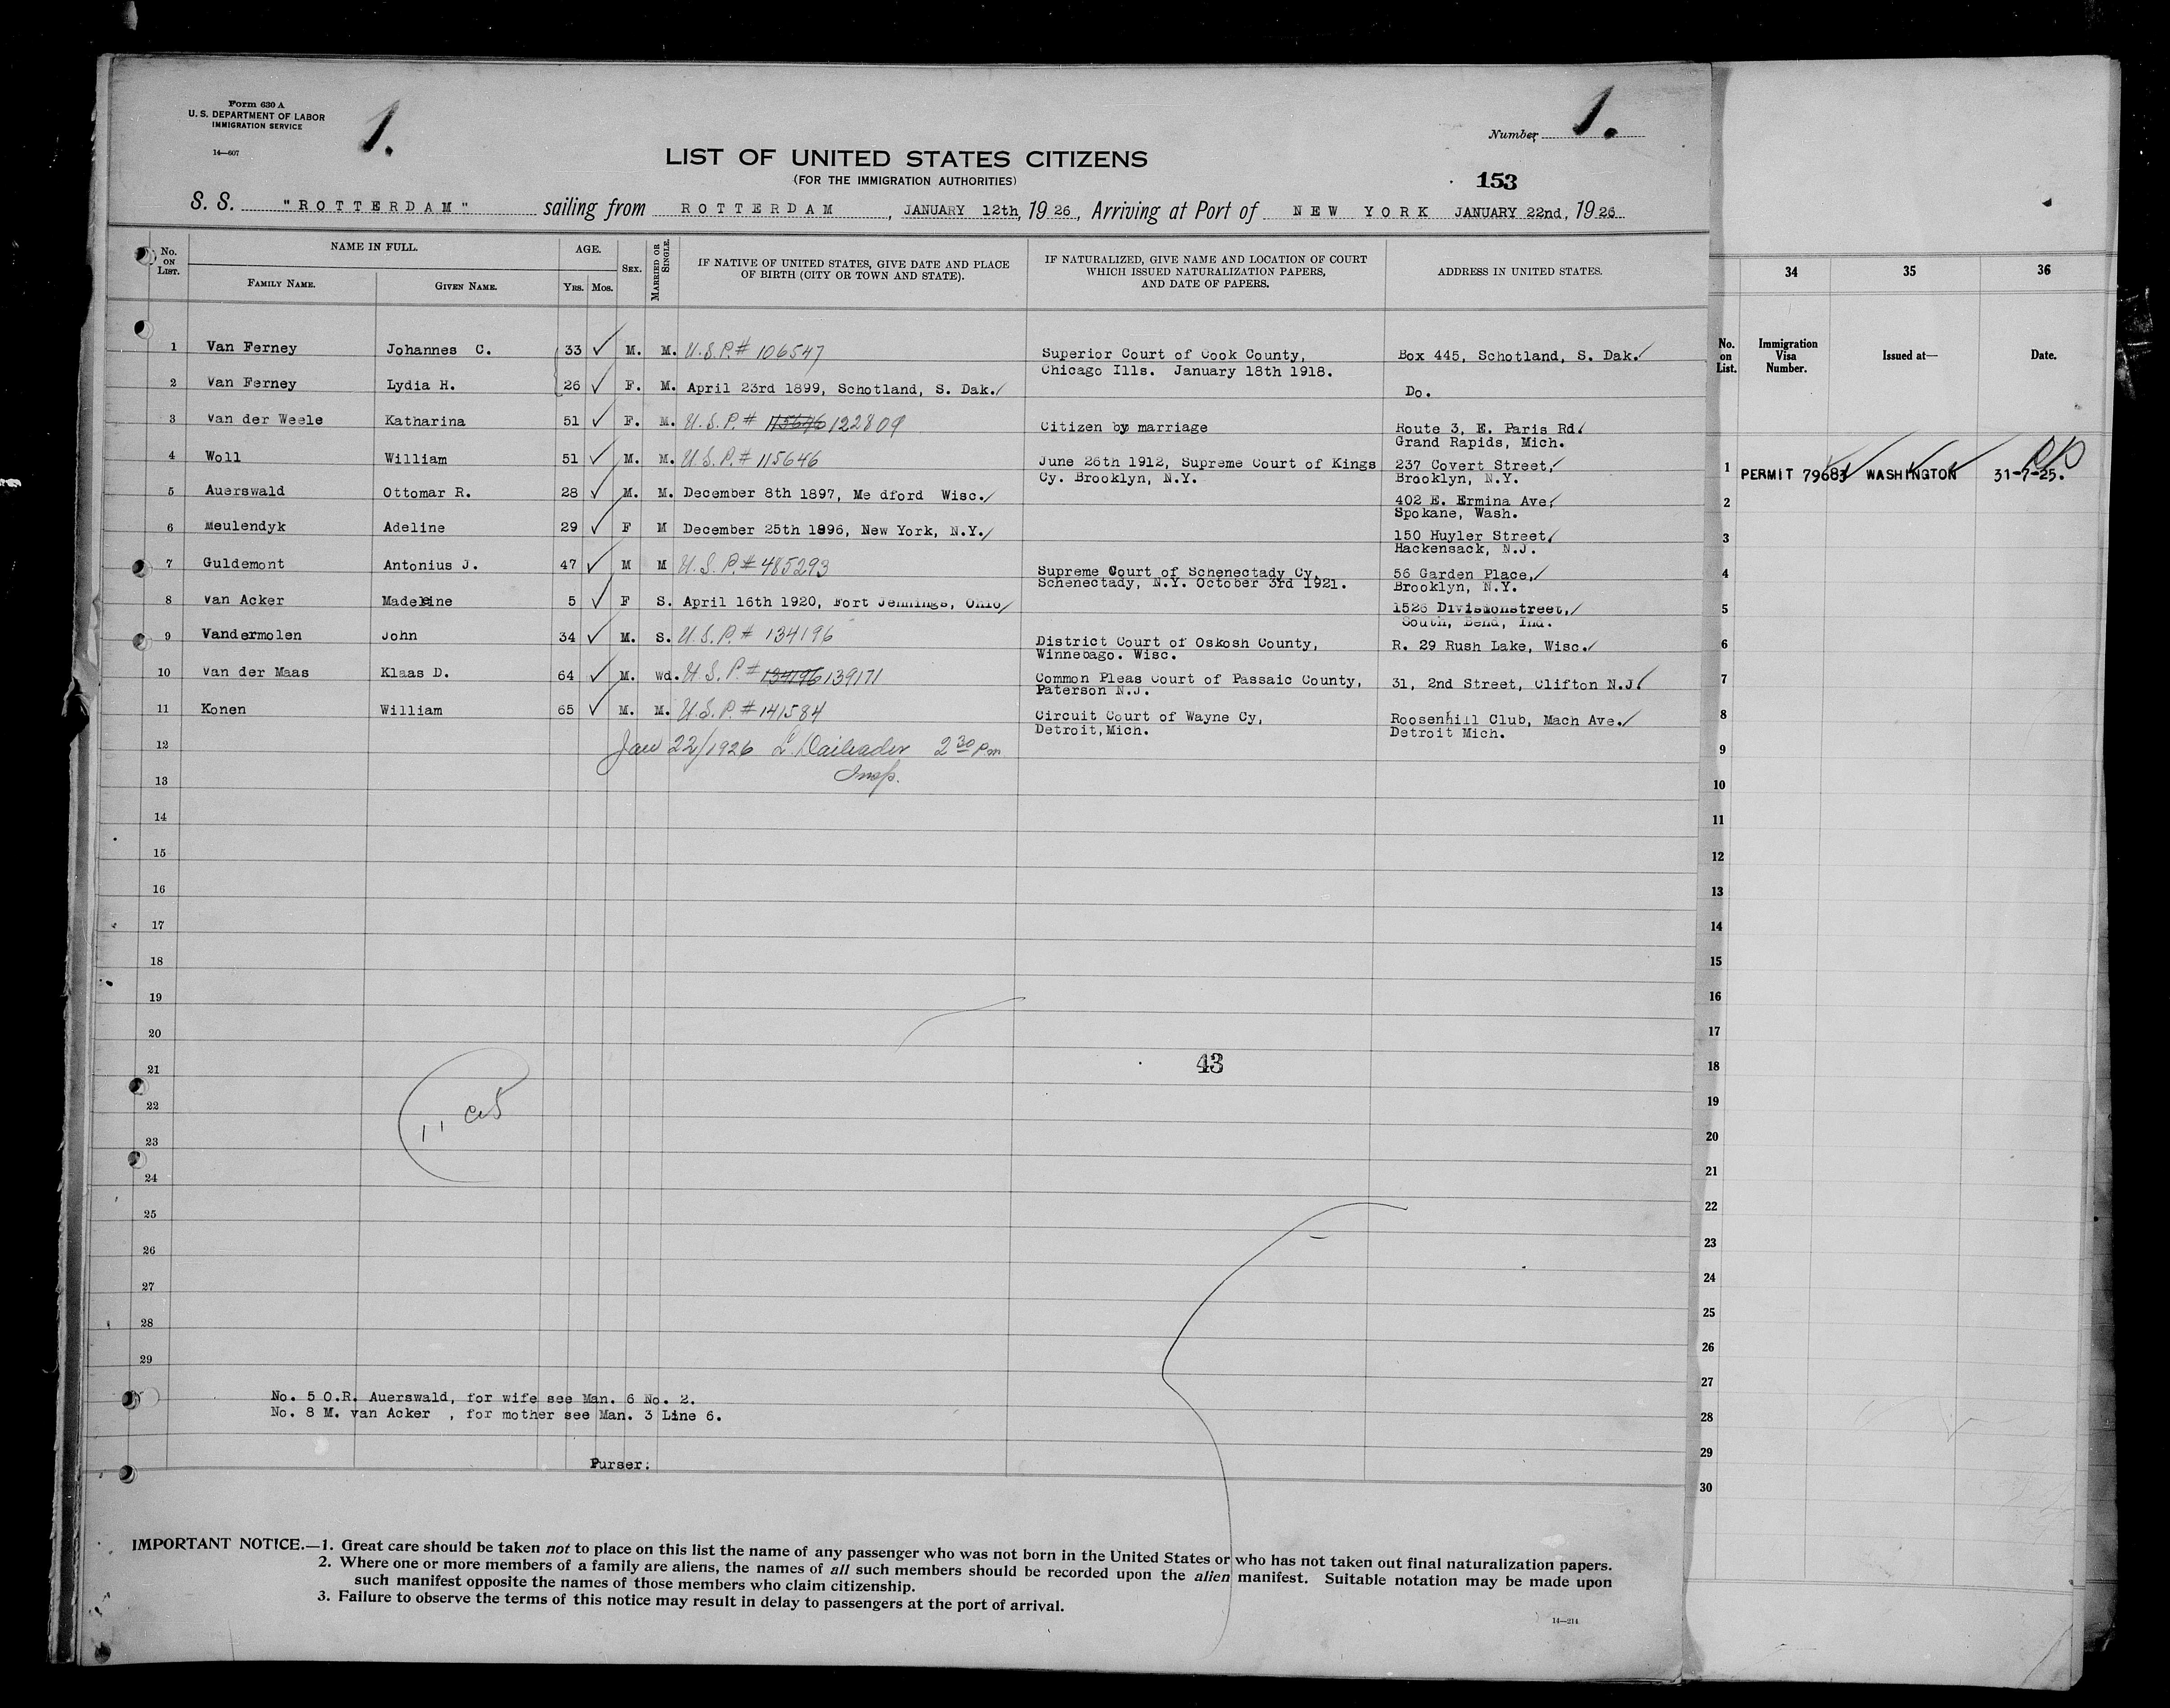 Form 630 A
U. S. DEPARTMENT OF LABOR
IMMIGRATION SERVICE
14—607
1.
Number 1.
LIST OF UNITED STATES CITIZENS
(FOR THE IMMIGRATION AUTHORITIES)
153
S. S. "ROTTERDAM" sailing from ROTTERDAM, JANUARY 12th, 1926, Arriving at Port of NEW YORK JANUARY 22nd, 1926
No. ON LIST.
NAME IN FULL.
FAMILY NAME.
GIVEN NAME.
AGE.
YRS. MOS.
SEX.
MARRIED OR SINGLE.
IF NATIVE OF UNITED STATES, GIVE DATE AND PLACE
OF BIRTH (CITY OR TOWN AND STATE).
IF NATURALIZED, GIVE NAME AND LOCATION OF COURT
WHICH ISSUED NATURALIZATION PAPERS,
AND DATE OF PAPERS.
ADDRESS IN UNITED STATES.
1 Van Ferney Johannes C. 33 ✓ M. M. U.S.P.# 106547 Superior Court of Cook County, Box 445, Schotland, S. Dak.
Chicago Ills. January 18th 1918.
2 Van Ferney Lydia H. 26 ✓ F. M. April 23rd 1899, Schotland, S. Dak. Do.
3 van der Weele Katharina 51 ✓ F. M. U.S.P.# 115646 122809 Citizen by marriage Route 3, E. Paris Rd.
Grand Rapids, Mich.
4 Woll William 51 ✓ M. M. U.S.P.# 115646 June 26th 1912, Supreme Court of Kings 237 Covert Street,
Cy. Brooklyn, N.Y. Brooklyn, N.Y.
5 Auerswald Ottomar R. 28 ✓ M. M. December 8th 1897, Me dford Wisc. 402 E. Ermina Ave,
Spokane, Wash.
6 Meulendyk Adeline 29 ✓ F M December 25th 1896, New York, N.Y. 150 Huyler Street,
Hackensack, N.J.
7 Guldemont Antonius J. 47 ✓ M M U.S.P.# 485293 Supreme Court of Schenectady Cy, 56 Garden Place,
Schenectady, N.Y. October 3rd 1921. Brooklyn, N.Y.
8 van Acker Madeleine 5 ✓ F S. April 16th 1920, Fort Jennings, Ohio 1526 Divisionstreet,
South, Bend, Ind.
9 Vandermolen John 34 ✓ M. S. U.S.P.# 134196 District Court of Oskosh County, R. 29 Rush Lake, Wisc.
Winnebago. Wisc.
10 van der Maas Klaas D. 64 ✓ M. Wd. U.S.P.# 134196 139171 Common Pleas Court of Passaic County, 31, 2nd Street, Clifton N.J.
Paterson N.J.
11 Konen William 65 ✓ M. M. U.S.P.# 141584 Circuit Court of Wayne Cy, Roosenhill Club, Mach Ave.
Detroit, Mich. Detroit Mich.
12 Jan 22/1926 2 30 pm
13 Insp.
14
15
16
17
18
19
20
43
21
22
23
24
25
26
27
28
29
No. 5 O.R. Auerswald, for wife see Man. 6 No. 2.
No. 8 M. van Acker , for mother see Man. 3 Line 6.
Purser:
IMPORTANT NOTICE.—1. Great care should be taken not to place on this list the name of any passenger who was not born in the United States or who has not taken out final naturalization papers.
2. Where one or more members of a family are aliens, the names of all such members should be recorded upon the alien manifest. Suitable notation may be made upon
such manifest opposite the names of those members who claim citizenship.
3. Failure to observe the terms of this notice may result in delay to passengers at the port of arrival.
14—214
34 35 36
No. on List.
Immigration Visa Number.
Issued at—
Date.
1 PERMIT 79683 WASHINGTON 31-7-25.
2
3
4
5
6
7
8
9
10
11
12
13
14
15
16
17
18
19
20
21
22
23
24
25
26
27
28
29
30